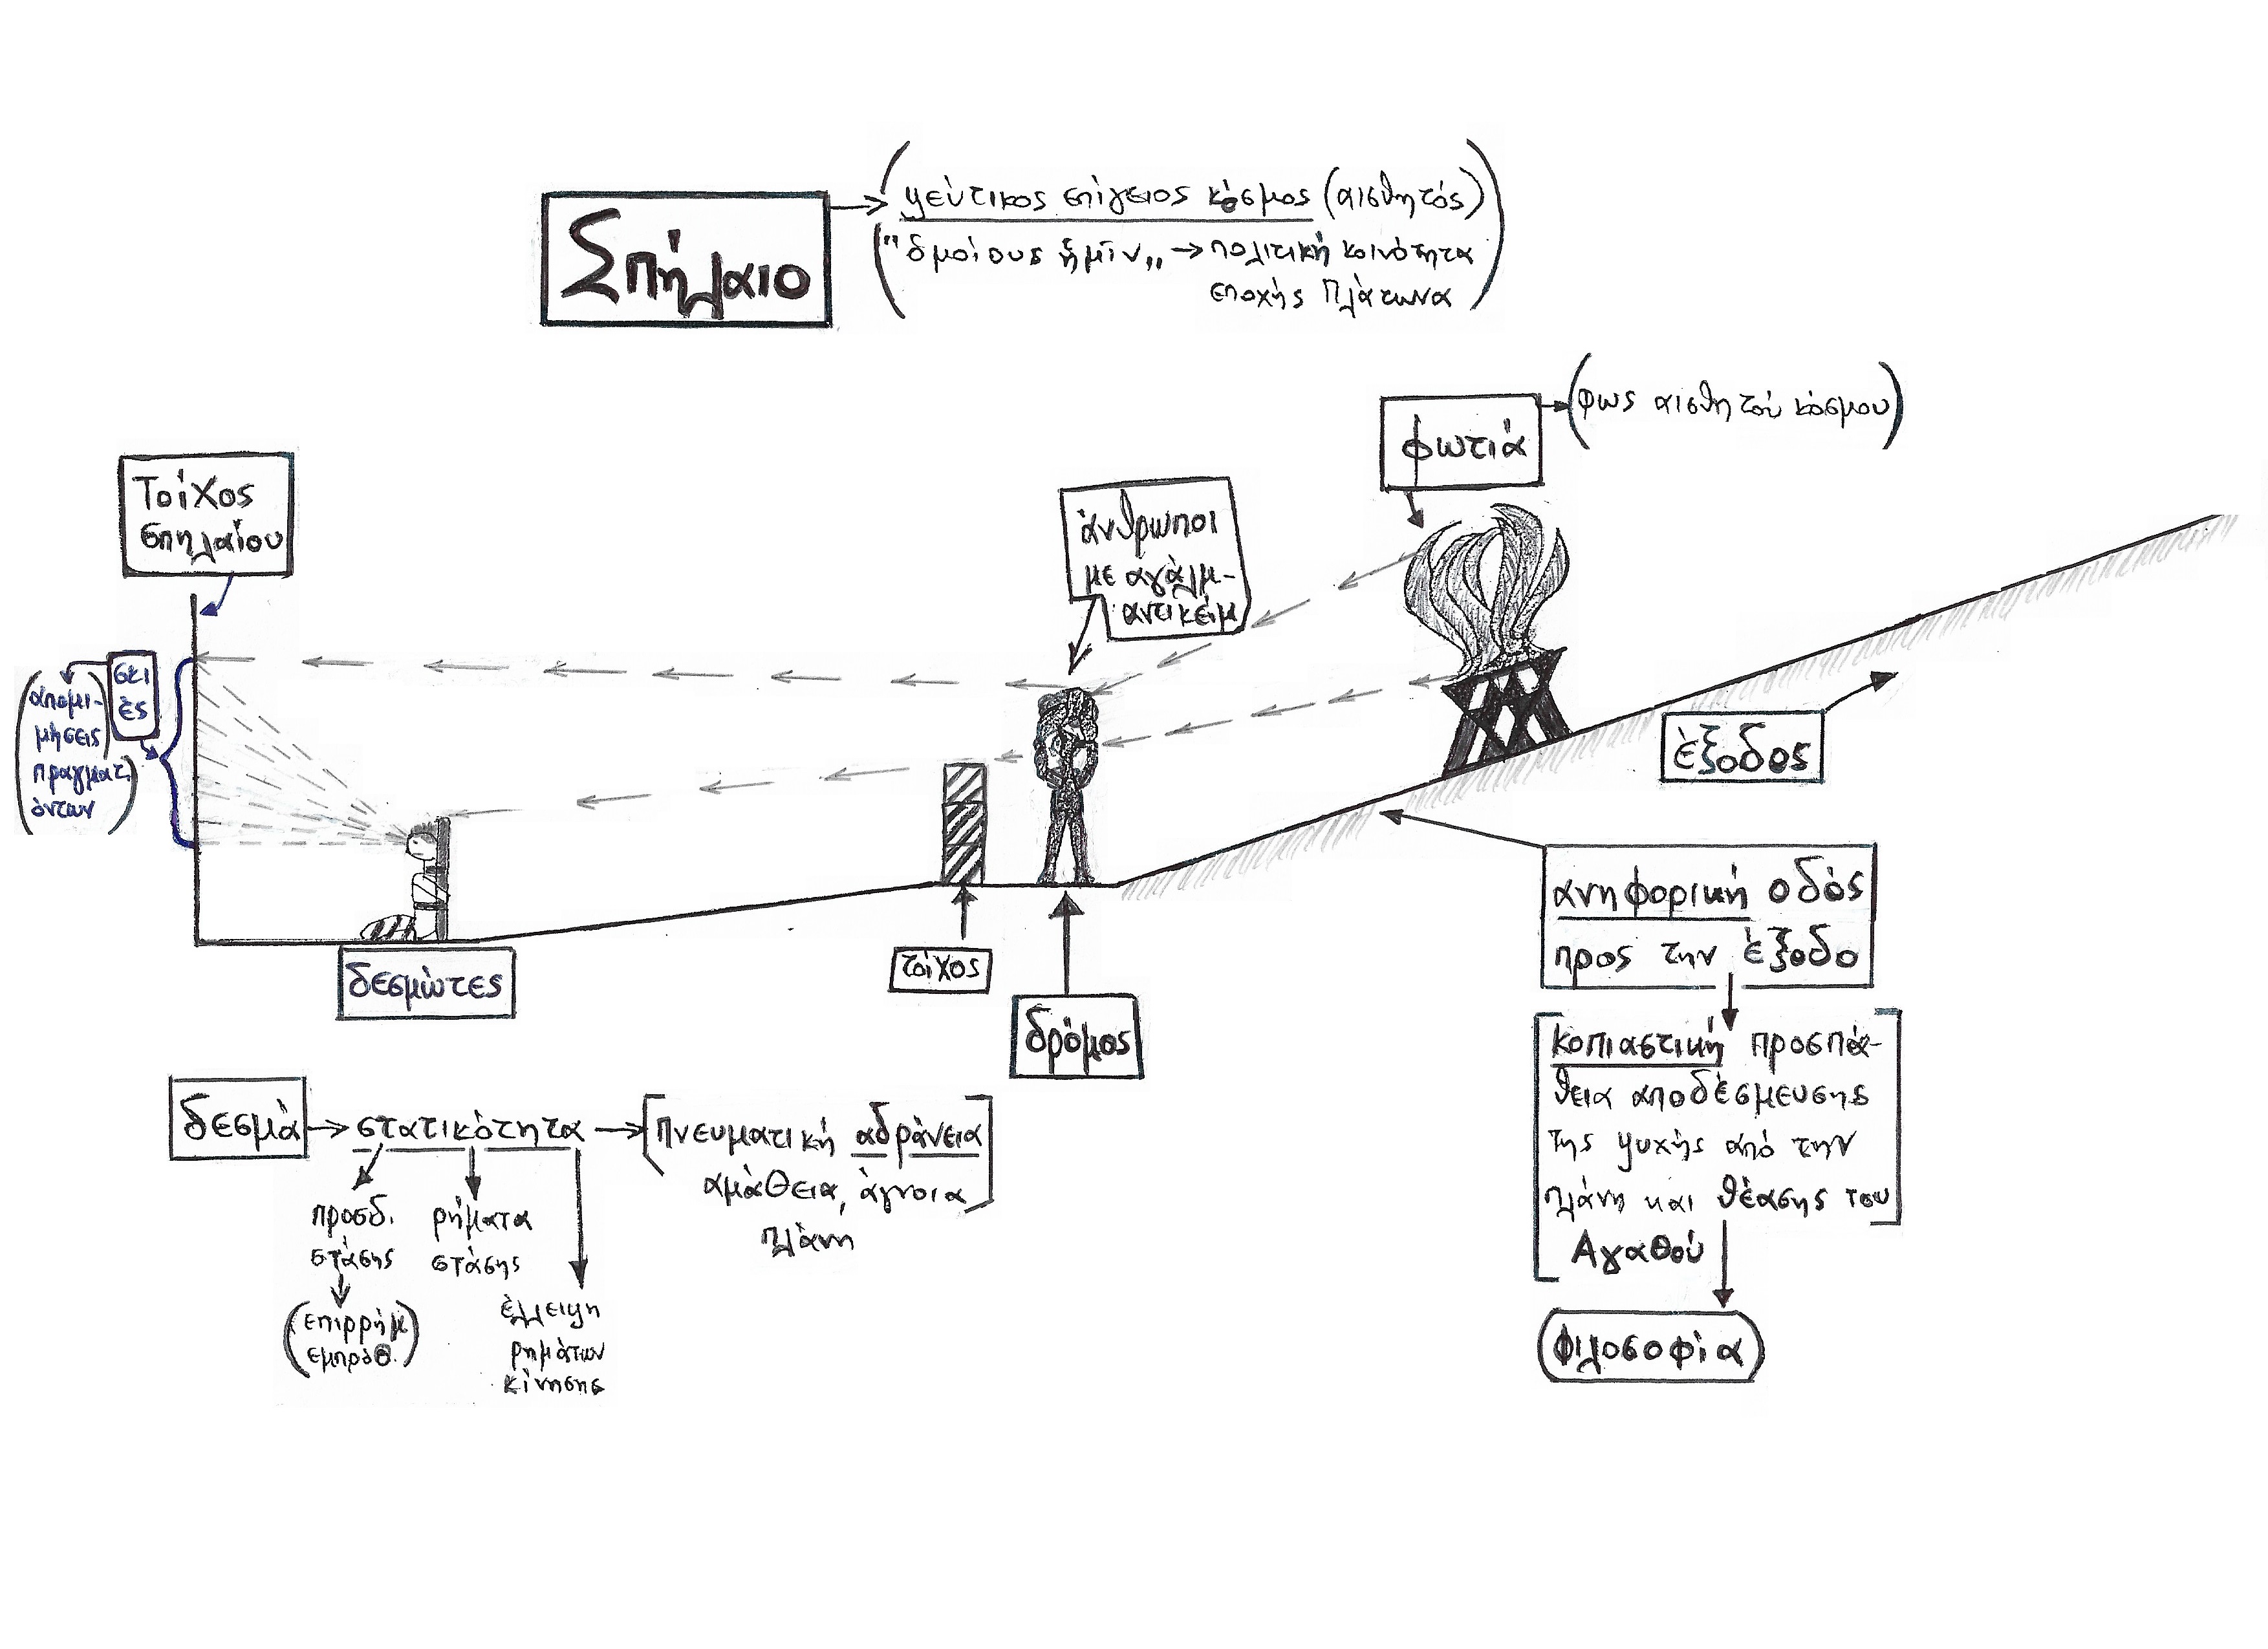 Σπήλαιο
ψεύτικος επίγειος κόσμος (αισθητός)
"ὁμοίους ἡμῖν„ → πολιτική κοινότητα
εποχής Πλάτωνα
φωτιά
(φως αισθητού κόσμου)
Τοίχος
σπηλαίου
άνθρωποι
με αγάλμ-
αντικείμ
σκι
ές
(απομι-
μήσεις)
πραγματ.
όντων)
έξοδος
δεσμώτες
τοίχος
δρόμος
ανηφορική οδός
προς την έξοδο
[κοπιαστική προσπά-
θεια αποδέσμευσης
της ψυχής από την
πλάνη και θέασης του]
Αγαθού
(φιλοσοφία)
δεσμά → στατικότητα → [πνευματική αδράνεια
αμάθεια, άγνοια]
πλάνη
προσδ.
στάσης
(επιρρήμ
εμπρόσθ.)
ρήματα
στάσης
έλλειψη
ρημάτων
κίνησης